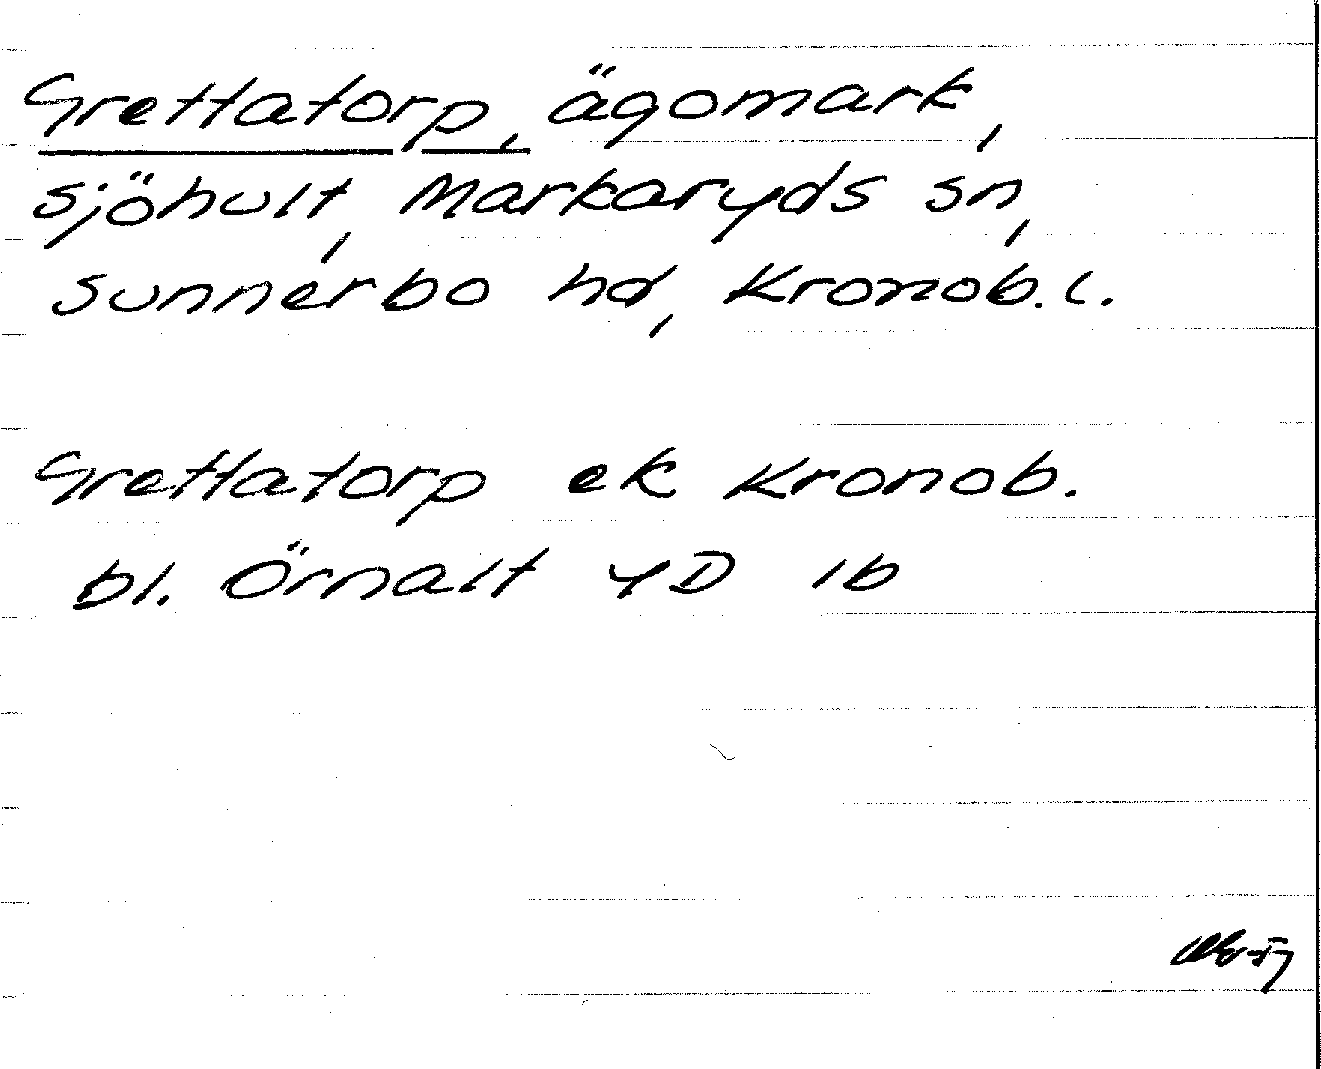 Grettatorp, ägomark,
Sjöhult, Markaryds sn,
Sunnerbo hd, Kronob. l.
Grettatorp ek Kronob.
bl. Örnalt 4D 1b